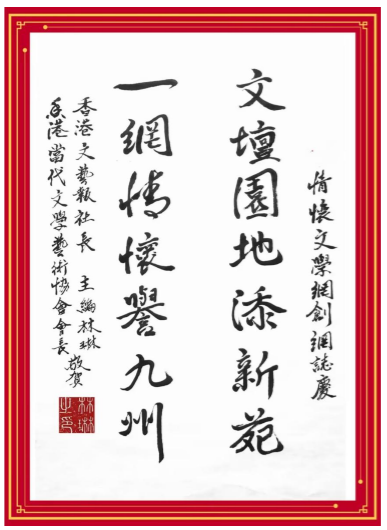 情懷文學網創網誌慶
文壇園地添新苑
一網情懷譽九州
香港文藝報社長 主編林琳
香港當代文學藝術協會會長 敬賀
林琳之印